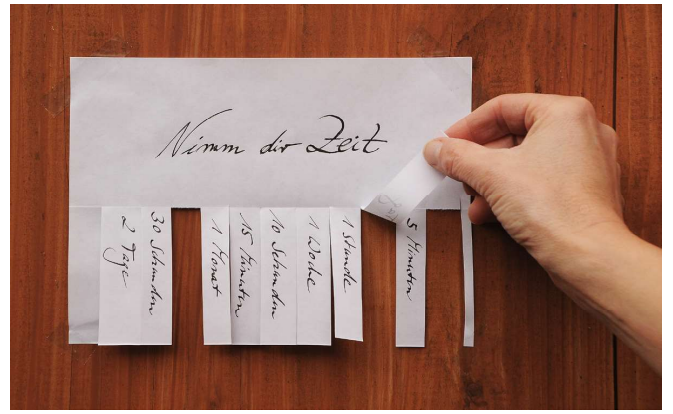 Nimm dir Zeit
2 Tage
30 Sekunden
1 Monat
15 Minuten
10 Sekunden
1 Woche
1 Stunde
5 Minuten